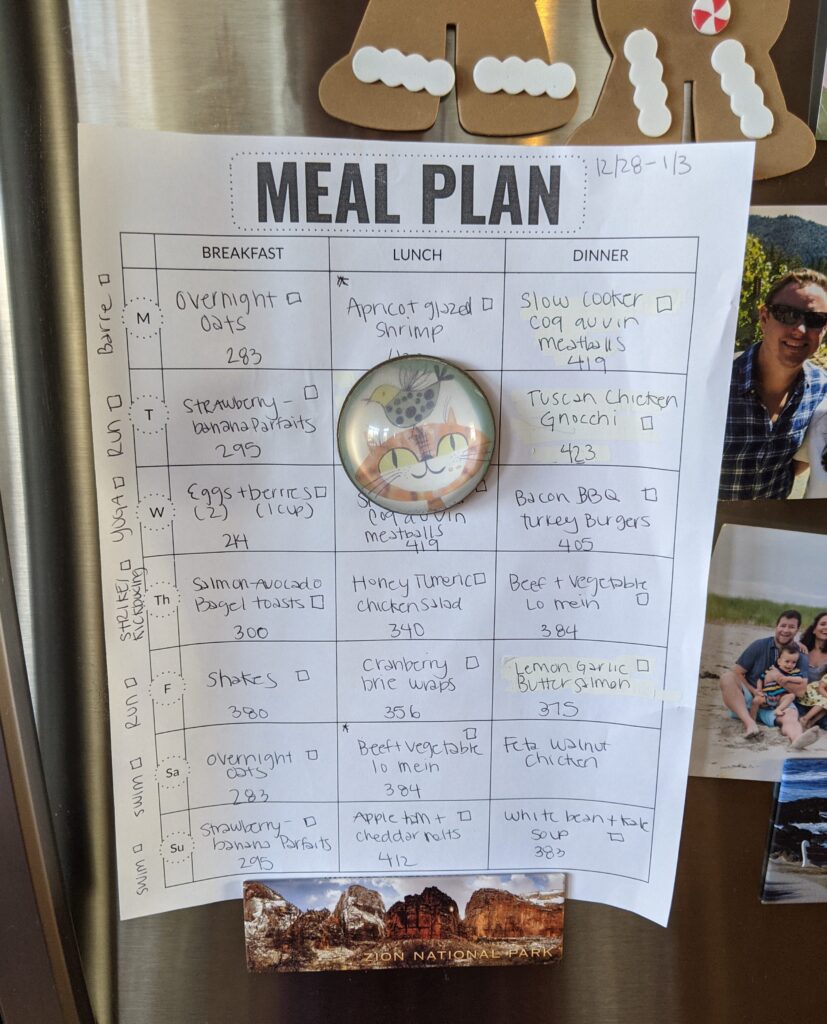 MEAL PLAN
12/28-1/3
BREAKFAST
LUNCH
DINNER
Barre
M
Overnight
oats
283
*
Apricot glazed
Shrimp
Slow cooker
coq au vin
meatballs
419
Run
T
Strawberry-
banana Parfaits
295
Tuscan Chicken
Gnocchi
423
YOGA
W
Eggs + berries
(2) (1 cup)
214
coq au vin
meatballs
419
Bacon BBQ
turkey Burgers
405
STRIKE/
Kickboxing
Th
Salmon-Avocado
Bagel toasts
300
Honey Tumeric
chicken Salad
340
Beef + Vegetable
lo mein
384
Run
F
Shakes
380
Cranberry
brie wraps
356
Lemon Garlic
Butter Salmon
375
swim
Sa
overnight
oats
283
*
Beef + Vegetable
lo mein
384
Feta Walnut
Chicken
swim
Su
Strawberry-
banana Parfaits
295
Apple ham +
cheddar melts
412
White bean + kale
soup
383
ZION NATIONAL PARK